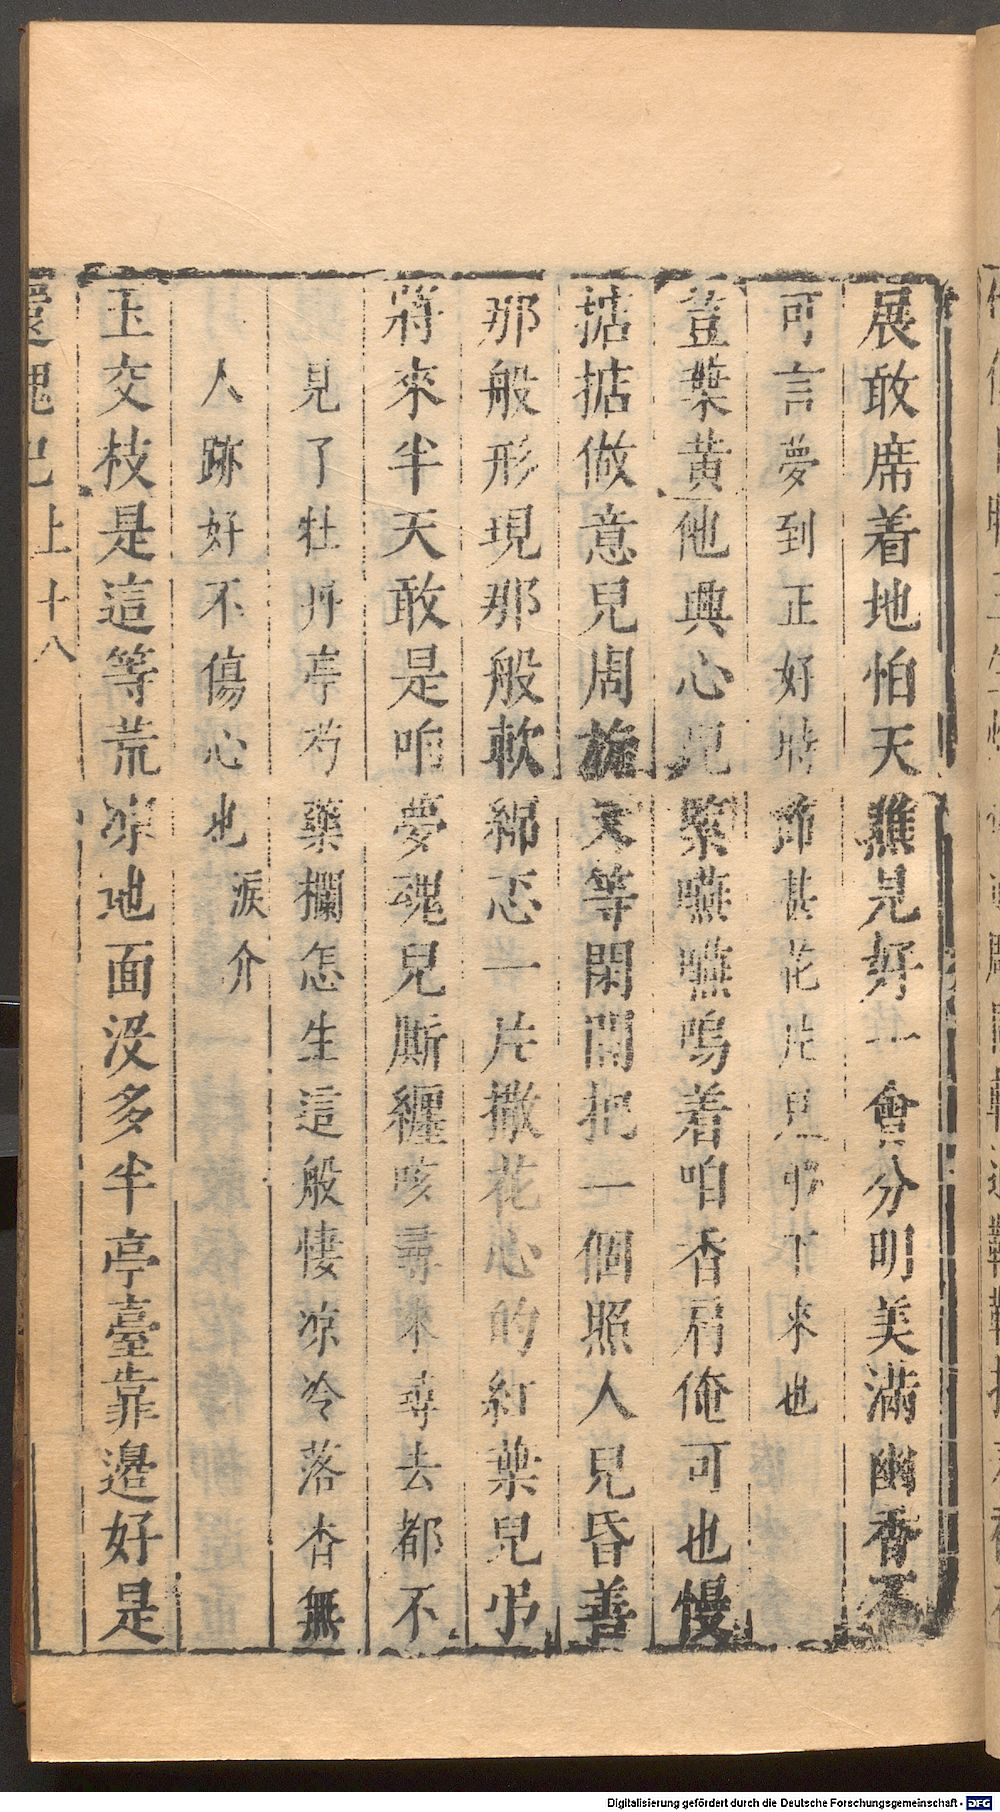 展敢席着地怕天瞧見好一會分明美滿幽香不
可言夢到正好時節甚花片兒弔下來也
荳葉黄他興心兒緊嚥嚥嗚着咱香肩俺可也慢
掂掂做意兒周旋等閑間把一個照人兒昏善
那般形現那般軟綿忑一片撒花心的紅葉兒弔
將來半天敢是咱夢魂兒厮纏咳尋來尋去都不
見了牡丹亭芍藥欄怎生這般悽凉冷落杳無
人跡好不傷心也淚介
玉交枝是這等荒凉地面没多半亭臺靠邊好是
還魂記上十八
Digitalisierung gefördert durch die Deutsche Forschungsgemeinschaft - DFG